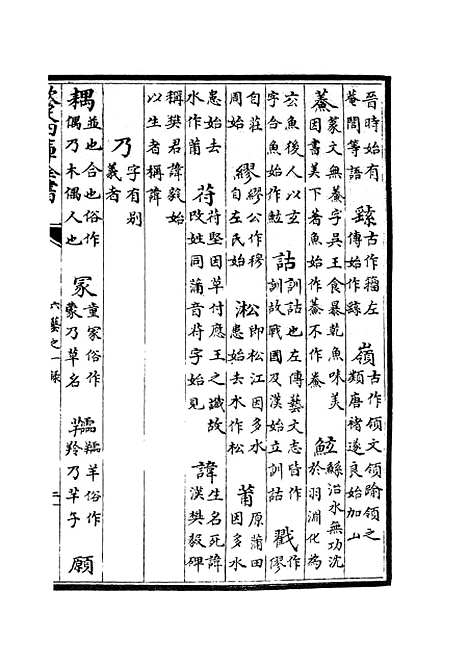 晉時始有菴閭等語　繇古作籕左傳始作繇　嶺古作領文領踰領之類唐褚遂良始加山
鯗篆文無鯗字吳王食暴乾魚味美因書美下着魚始作鯗不作鮝　鮌鯀治水無功沉於羽淵化為
玄魚後人以玄字合魚始作鮌　詁訓詁也左傳藝文志皆作訓故戰國及漢始立訓詁　戮作僇
自莊周始　繆繆公作穆自左氏始　淞即松江因多水患始去水作松　莆原蒲田因多水
患始去水作莆　苻苻堅因草付應王之讖故改姓同蒲音苻字始見　諱生名死諱漢樊毅碑
稱樊君諱毅始以生者稱諱
乃字有别義者
耦並也合也俗作偶乃木偶人也　冡童冡俗作蒙乃草名　羊俗作羚乃羊子　願
欽定四庫全書　六藝之一録